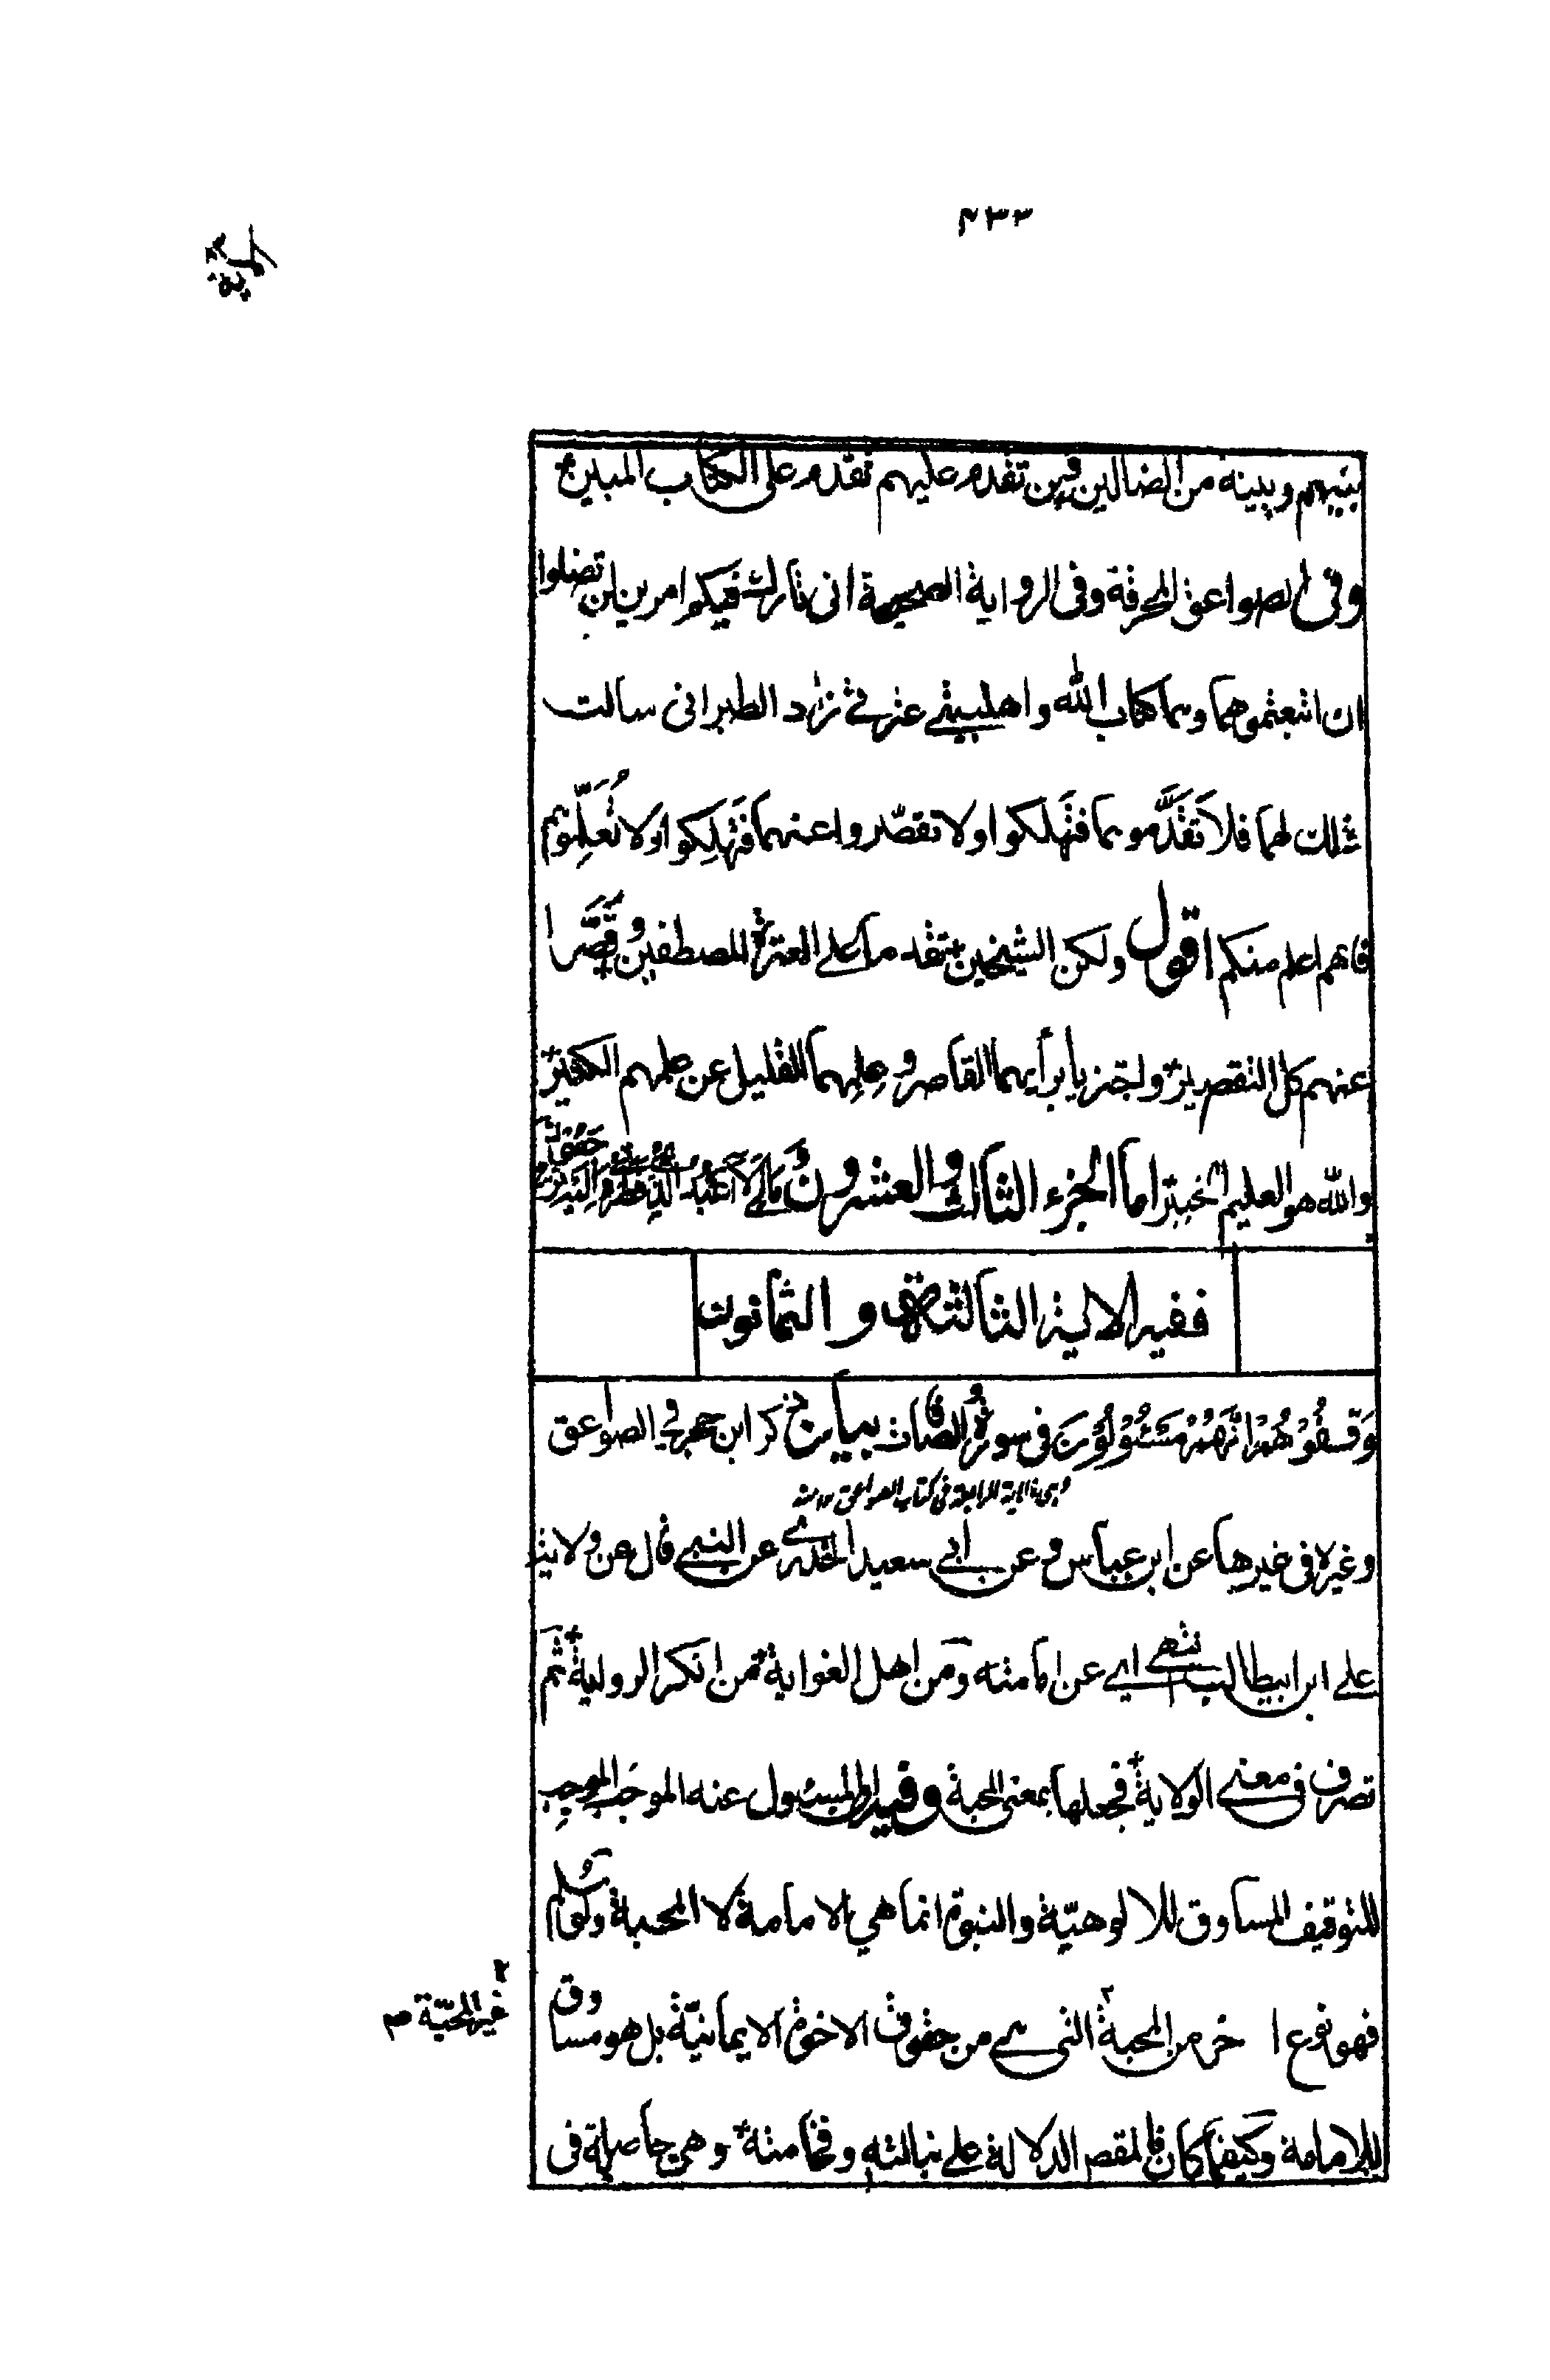 ٤٣٣
بينهم وبينه من الضالين فمن تقدم عليهم تقدم على الكتاب المبين
وفى الصواعق المحرقة وفى الرواية الصحيحة انى تارك فيكم امرين لن تضلوا
ان اتبعتموهما وهما كتاب الله واهلبيتي عترتي زاد الطبرانى سالت
ذلك لهما فلا تَقَدَّموهما فتهلكوا ولا تقصّروا عنهما فتَهلِكوا ولا تُعَلِّموهم
فانهم اعلم منكم اقول ولكن الشيخين تقدما على العترة المصطفين وقَصَّرا
عنهم كل التقصير واجتزيا برأيهما القاصر وعلمهما القليل عن علمهم الكثير
والله هو العليم الخبير اما الجزء الثانى والعشرون وَمَالِيَ لَا أَعْبُدُ الَّذِي فَطَرَنِي
ففيه الاية الثالثة والثمانون
وَقِفُوهُمْ إِنَّهُمْ مَسْئُولُونَ فى سورة الصافات بيانه ذكر ابن حجر في الصواعق
وهى الاية الرابعة فى كتاب الصواعق ١٢ منه
وغيره فى غيرها عن ابن عباس وعن ابي سعيد الخدري عن النبي قال عن ولاية
علي ابن ابيطالب انتهى اي عن امامته ومن اهل الغواية من انكر الرواية ثم
تصرف فى معنى الولاية فجعلها بمعنى المحبة وفيه ان المسئول عنه الموجَب الموجِب
للتوقيف المساوق للالوهيّة والنبوة انما هي الامامة لا المحبة ولو سُلم
فهو نوع اخر من المحبة التى هي من حقوق الاخوة الايمانيّة بل هو مساوق
غير المحبّة
للامامة وكيفما كان فالمقصد الدلالة على نبالته وفخامته وهى حاصلة فى